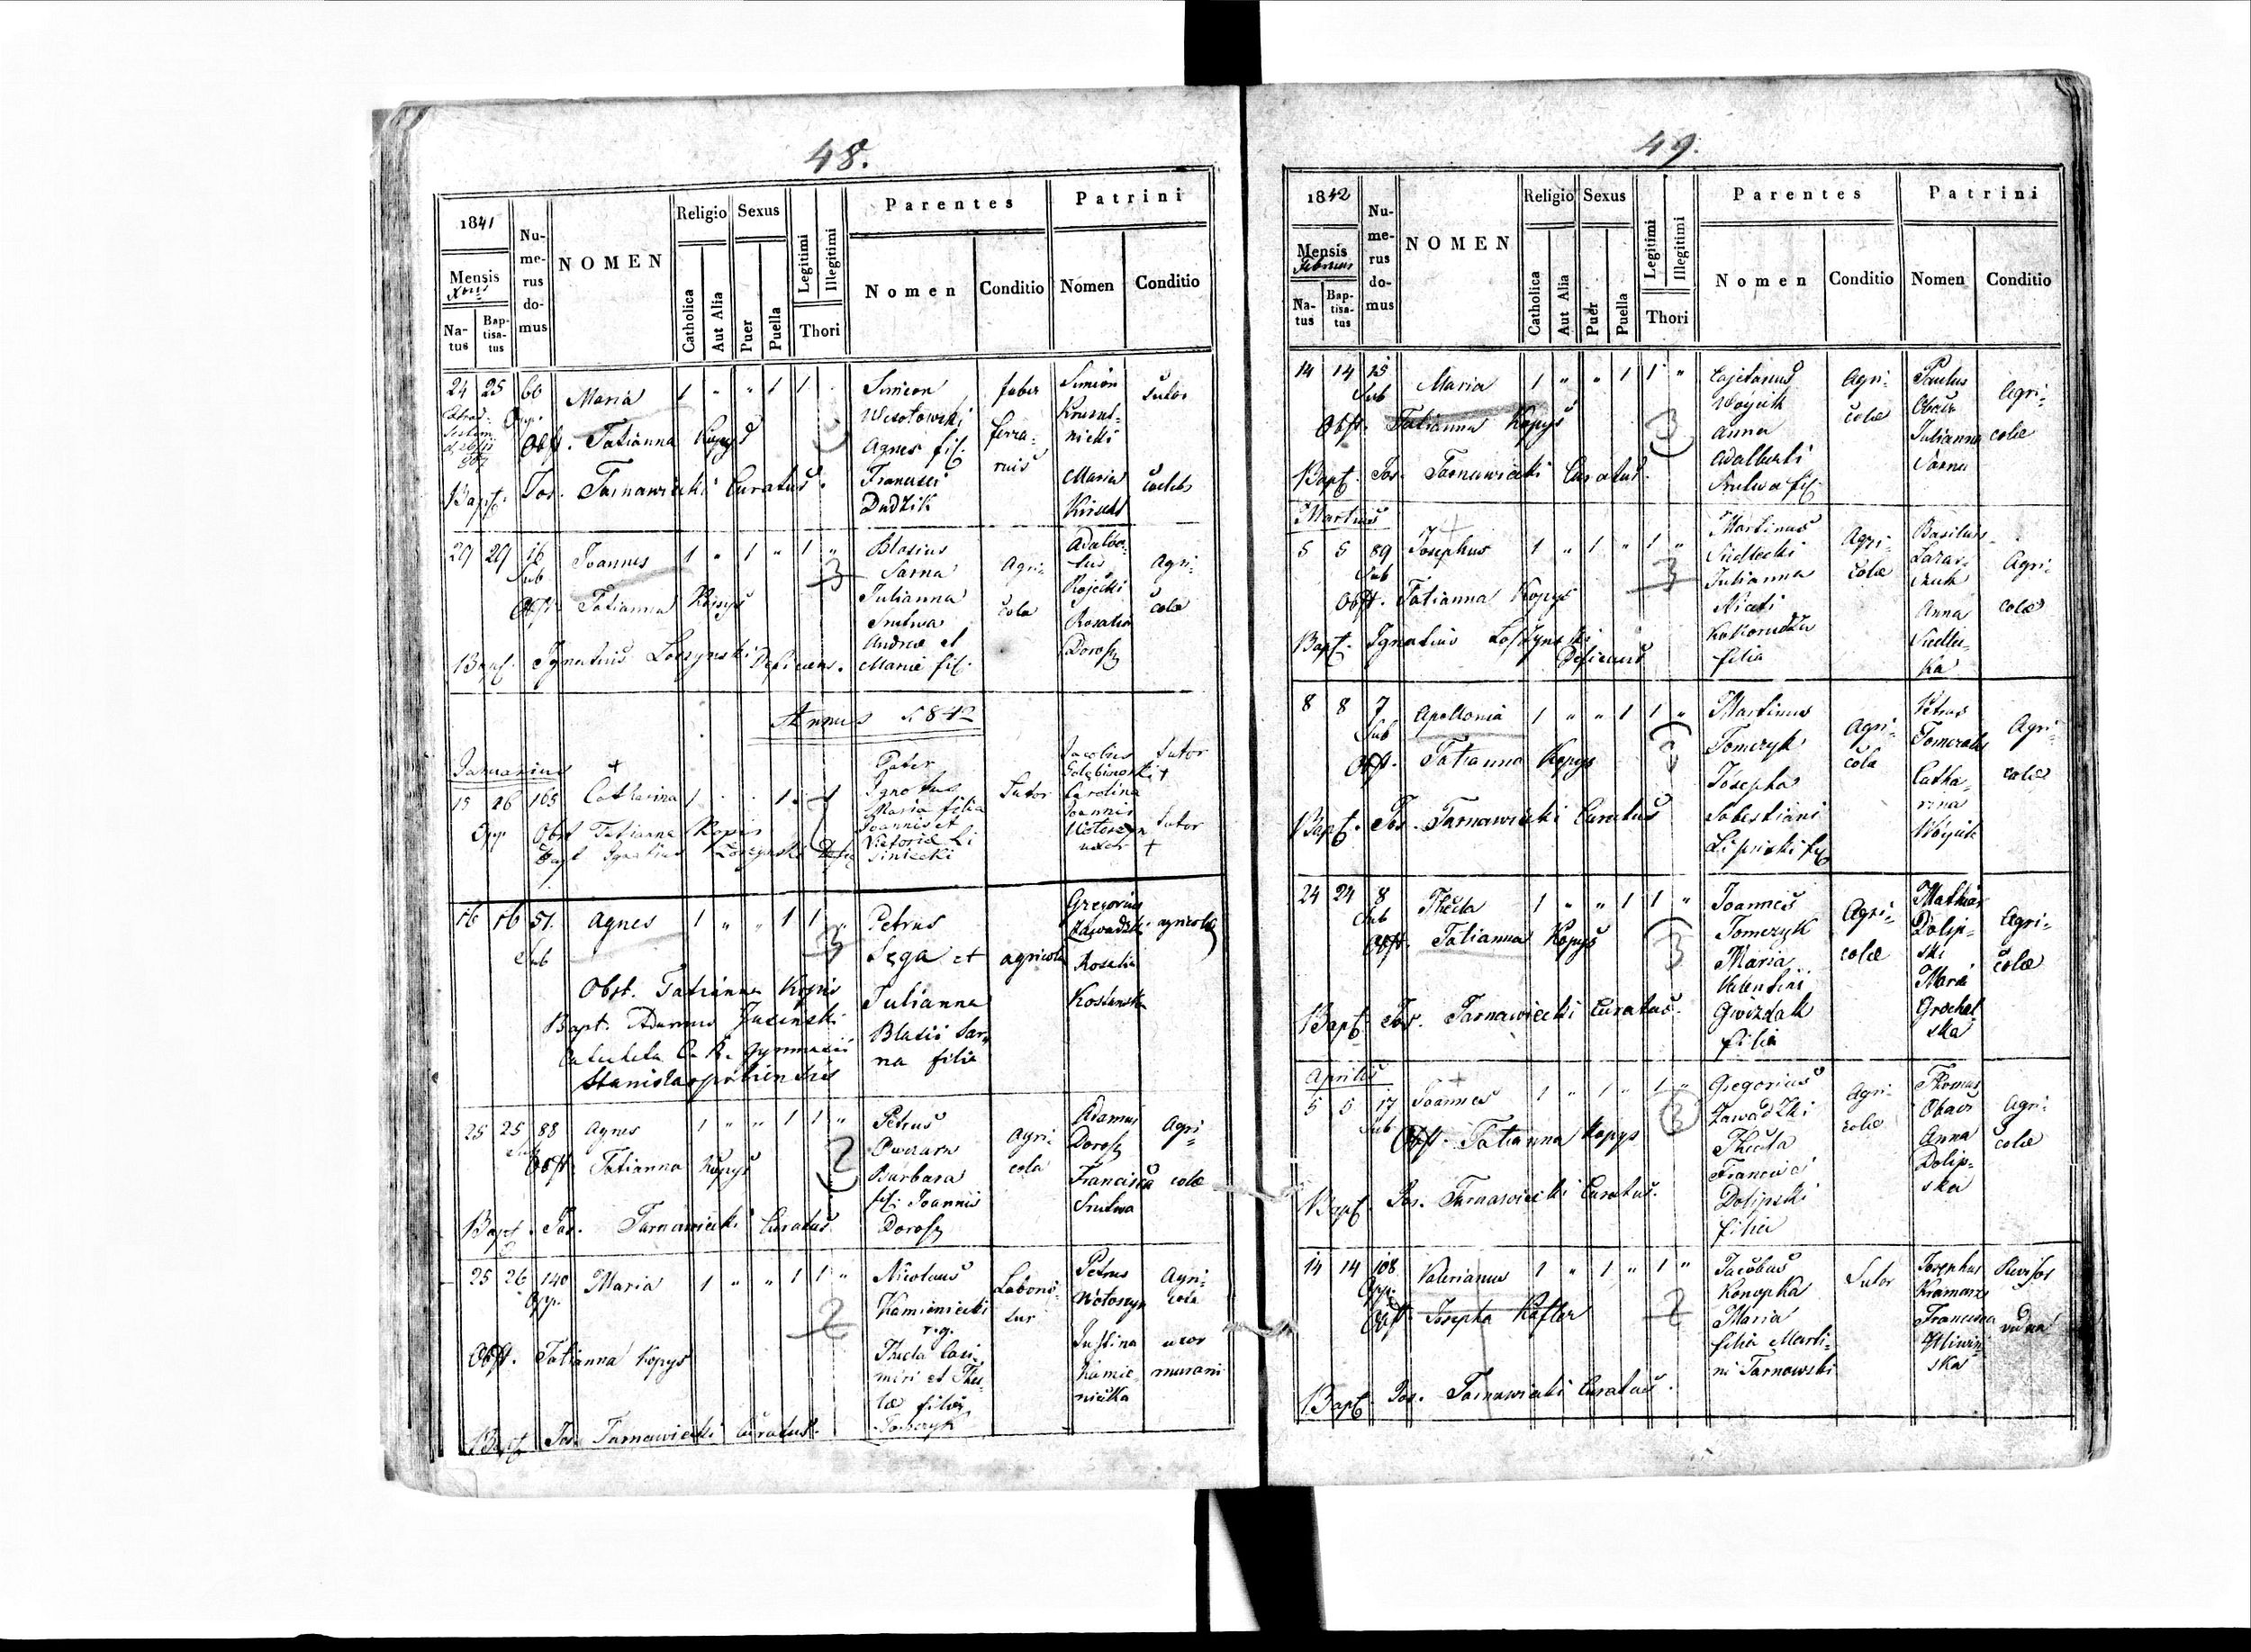 48.
1841
Mensis
Xbris
Natus
Baptisatus
Numerus domus
NOMEN
Religio
Catholica
Aut Alia
Sexus
Puer
Puella
Legitimi
Illegitimi
Thori
Parentes
Nomen
Conditio
Patrini
Nomen
Conditio
24 25 60 Maria 1 " " 1 1
Opp.
Obst. Tatianna Kopys
Bapt. Jos. Tarnawiecki Curatus.
Simeon
Wesołowski
Agnes fil.
Francisci
Dudzik
faber
ferra-
rius
Simeon
nicki
Maria
Sutor
29 29 16 Joannes 1 " 1 " 1 "
Sub
3
Obst. Tatianna Kopys
Bapt. Ignatius Łoszynski Deficiens.
Blasius
Sarna
Julianna
Srutwa
Andreæ et
Mariæ fil.
Agri-
cola
Adalber-
tus
Kojecki
Rosalia
Dorosz
Agri-
colæ
Annus 1842
Januarius
15 26 165 Catharina 1 . . 1 . 1
Opp
Obst Tatianna Kopys
Bapt Ignatius Łoszynski Defic
Pater
Ignotus
Maria filia
Joannis et
Victoriæ Li
siniecki
Sutor
Jacobus
Gołębiowski +
Carolina
Joannis
Wołoszyn
uxor
Sutor
Sutor
+
16 16 51. Agnes 1 " " 1 1 "
Sub
3
Obst. Tatianna Kopys
Bapt. Adamus Jasinski
Catecheta C. R. Gymnasii
Stanislaopoliensis
Petrus
Sęga et
Julianna
Blasii Sar-
na filia
agricola
Gregorius
Zawadzki
Rosalia
agricola
25 25 88 Agnes 1 " " 1 1 "
Sub
2
Obst. Tatianna Kopys
Bapt. Jos. Tarnawiecki Curatus.
Petrus
Owczarz
Barbara
fil. Joannis
Dorosz
Agri-
cola
Adamus
Dorosz
Francisca
Srutwa
Agri-
colæ
25 26 140 Maria 1 " " 1 1 "
Opp.
2
Obst. Tatianna Kopys
Bapt. Jos. Tarnawiecki Curatus.
Nicolaus
Kamieniecki
r. g.
Thecla Casi-
miri et The-
læ filia
Tomczyk
Petrus
Wołoszyn
Justina
Kamie-
niecka
Agri-
cola
uxor
murarii
49.
1842
Mensis
Februar
Natus
Baptisatus
Numerus domus
NOMEN
Religio
Catholica
Aut Alia
Sexus
Puer
Puella
Legitimi
Illegitimi
Thori
Parentes
Nomen
Conditio
Patrini
Nomen
Conditio
14 14 15 Maria 1 " " 1 1 "
Sub
3
Obst. Tatianna Kopys
Bapt. Jos. Tarnawiecki Curatus.
Cajetanus
Woycik
Anna
Adalberti
Srutwa fil.
Agri-
colæ
Paulus
Julianna
Sarna
Agri-
colæ
Martius
5 5 89 Josephus 1 " 1 " 1 "
Sub
3
Obst. Tatianna Kopys
Bapt. Ignatius Łoszynski
Deficiens
Martinus
Siedlecki
Julianna
filia
Agri-
colæ
Basilius
Łazar-
czuk
Anna
Siedlec-
ka
Agri-
colæ
8 8 7 Apollonia 1 " " 1 1 "
Sub
Obst. Tatianna Kopys
Bapt. Jos. Tarnawiecki Curatus
Martinus
Tomczyk
Josepha
Sabestiani
Lipinski fil
Agri-
cola
Petrus
Catha-
rina
Woycik
Agri-
colæ
24 24 8 Thecla 1 " " 1 1 "
Sub
3
Obst. Tatianna Kopys
Bapt. Jos. Tarnawiecki Curatus.
Joannes
Tomczyk
Maria
Valentini
Gwizdak
filia
Agri-
colæ
Mathias
Dolip-
ski
Maria
Grochol-
ska
Agri-
colæ
Aprilis
5 5 17 Joannes 1 " 1 " 1 "
Sub
3
Obst. Tatianna Kopys
Bapt. Jos. Tarnawiecki Curatus.
Gregorius
Zawadzki
Thecla
Francisci
Dolipski
filia
Agri-
colæ
Thomas
Anna
Dolip-
ska
Agri-
colæ
14 14 108 Valerianus 1 " 1 " 1 "
Opp.
2
Obst. Josepha Kofler
Bapt. Jos. Tarnawiecki Curatus.
Jacobus
Konopka
Maria
filia Marti-
ni Tarnawski
Sutor
Josephus
Kramarz
Francisca
ska
Revisor
vidua